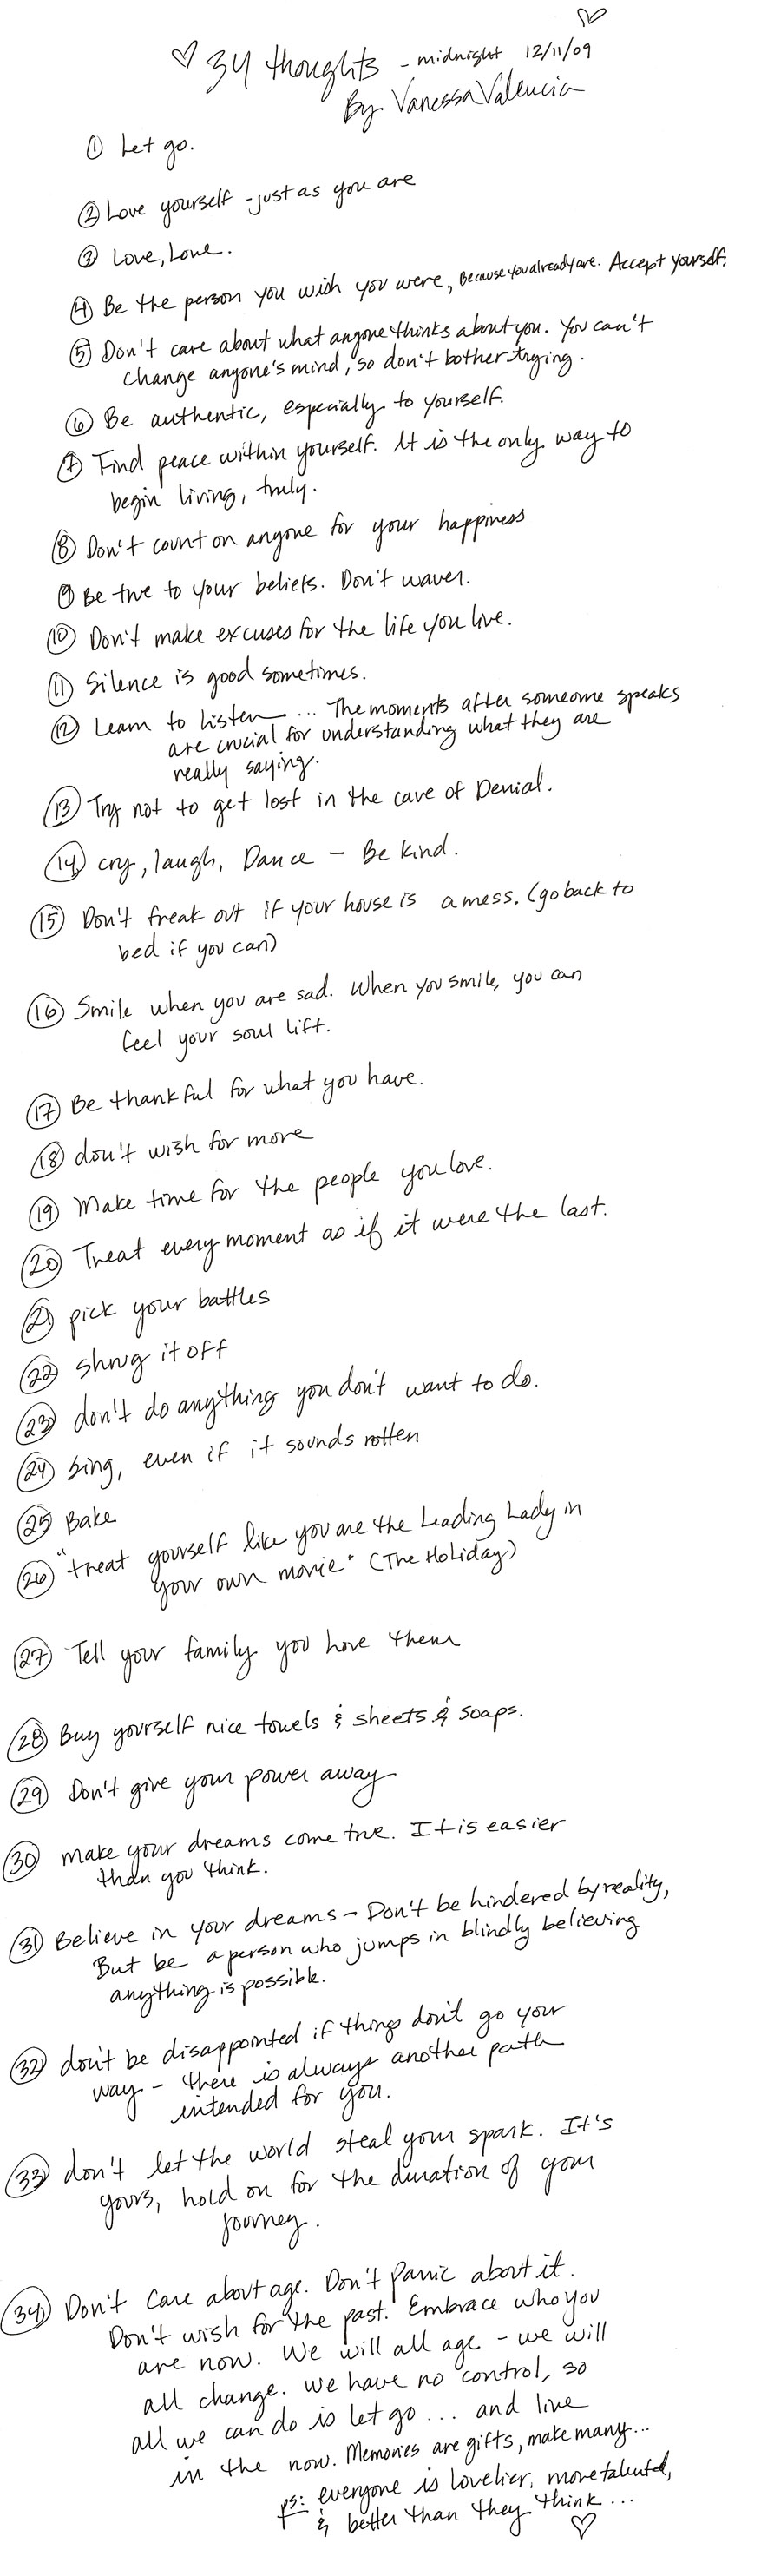 ♡ 34 thoughts - midnight 12/11/09 ♡
By Vanessa Valencia
① Let go.
② Love yourself - just as you are
③ Love, Love.
④ Be the person you wish you were, Because you already are. Accept yourself.
⑤ Don't care about what anyone thinks about you. You can't
change anyone's mind, so don't bother trying.
⑥ Be authentic, especially to yourself.
⑦ Find peace within yourself. It is the only way to
begin living, truly.
⑧ Don't count on anyone for your happiness
⑨ Be true to your beliefs. Don't waver.
⑩ Don't make excuses for the life you live.
⑪ Silence is good sometimes.
⑫ Learn to listen ... The moments after someone speaks
are crucial for understanding what they are
really saying.
⑬ Try not to get lost in the cave of Denial.
⑭ cry, laugh, Dance - Be kind.
⑮ Don't freak out if your house is a mess. (go back to
bed if you can)
⑯ Smile when you are sad. When you smile, you can
feel your soul lift.
⑰ Be thankful for what you have.
⑱ don't wish for more
⑲ Make time for the people you love.
⑳ Treat every moment as if it were the last.
㉑ pick your battles
㉒ shrug it off
㉓ don't do anything you don't want to do.
㉔ Sing, even if it sounds rotten
㉕ Bake
㉖ "treat yourself like you are the Leading Lady in
your own movie" (The Holiday)
㉗ Tell your family you love them
㉘ Buy yourself nice towels & sheets & soaps.
㉙ Don't give your power away
㉚ make your dreams come true. It is easier
than you think.
㉛ Believe in your dreams - Don't be hindered by reality,
But be a person who jumps in blindly believing
anything is possible.
㉜ don't be disappointed if things don't go your
way - there is always another path
intended for you.
㉝ don't let the world steal your spark. It's
yours, hold on for the duration of your
journey.
㉞ Don't care about age. Don't panic about it.
Don't wish for the past. Embrace who you
are now. We will all age - we will
all change. we have no control, so
all we can do is let go ... and live
in the now. Memories are gifts, make many...
ps: everyone is lovelier, more talented,
& better than they think ...
♡